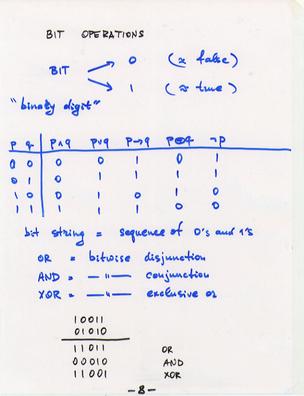 BIT OPERATIONS
BIT → 0 (≈ false)
→ 1 (≈ true)
"binary digit"
p q | p∧q p∨q p→q p⊕q ¬p
0 0 | 0 0 1 0 1
0 1 | 0 1 1 1 1
1 0 | 0 1 0 1 0
1 1 | 1 1 1 0 0
bit string = sequence of 0's and 1's
OR = bitwise disjunction
AND = —"— conjunction
XOR = —"— exclusive or
10011
01010
11011 OR
00010 AND
11001 XOR
-8-